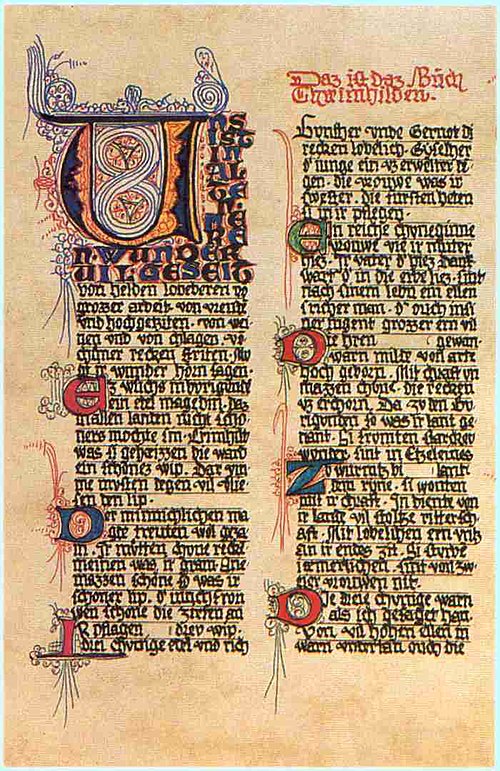 UNS
IST
IN AL
TEN
MERE
N. WUNDER
VIL. GESEIT
von helden lobeberen vō
grozzer arbeit. von vreude
vnd hochgeziten. von wei
nen vnd von chlagen. vō
chuner recken striten. Mv
get ir wunder horn sagen.
Ez wuhs in burigunde
ein etel magedin. daz
in allen lanten niht scho
ners mohte sin. Crimhilt
was si geheizzen die ward
ein schonez wip. Dar vm
me mvsten degen. vil vlie
sen den lip.
Der minnichlichen ma
gte trevten wol geza
m. ir mvtten chone recke
niemen was ir gram. ane
mazzen schone so was ir
schoner lip. d' iunchfrou
wen schone die zierten an
IR pflagen diev wip.
driei chvnige etel vnd rich
Daz ist daz Bůch
Chreimhilden.
Gvnther vnde Gernot di
recken lobelich. Gyselher
d' iunge ein vz erwelter de
gen. die vrouwe was ir
swester. die fursten heten
si in ir pflegen.
Ein reiche chvneginne
vrouwe vte ir můter
hiez. ir vater d' hiez dank
wart d' in die erbe liez. sint
nach sinem lebn ein ellen
tricher man. d' ouch in si
ner iugent grozzer ern vil
De hren gewan.
warn milde von arte
hoch geborn. Mit chraft vn
mazzen chvne. die recken
vz erchorn. Da zv den Bv
rigonden so was ir lant ge
nant. Si frvmten starckev
wonder sint in Etzeleines
Ze wurmtz bi lant
dem ryne. si wonten
mit ir chraft. In diente von
ir lande vil stoltze ritter sch
aft. Mit lobelichen ern vntz
an ir endes zit. si sturbe
iæmerlichen sint von zw
eier vrouwen nit.
Die drie chvnige warn
als ich gesaget han.
von vil hohen ellen in
warn vntertan ouch die